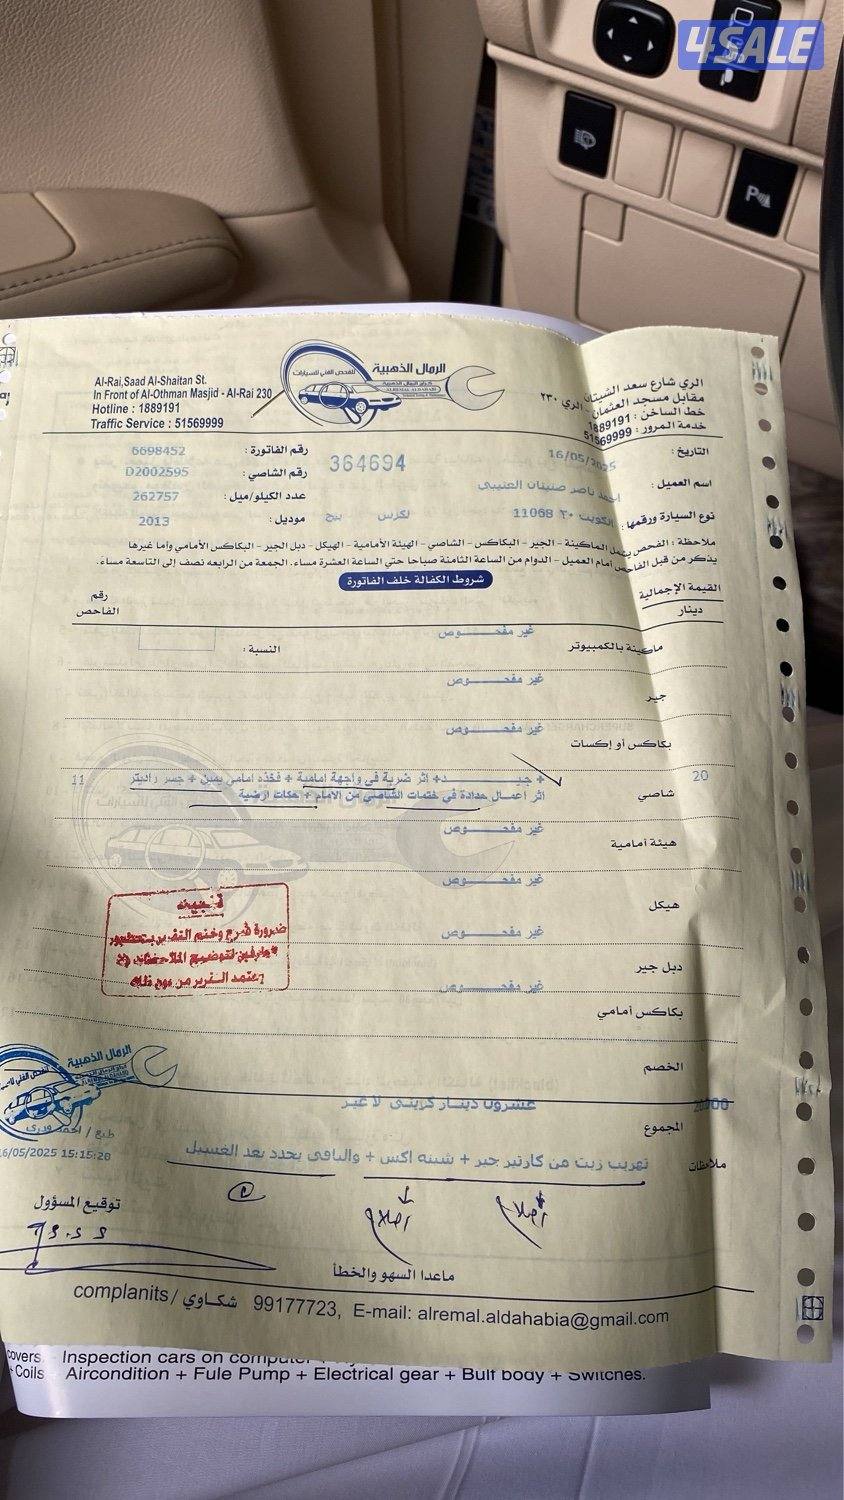 4SALE
Al-Rai,Saad Al-Shaitan St.
In Front of Al-Othman Masjid - Al-Rai 230
Hotline : 1889191
Traffic Service : 51569999
الرمال الذهبية
للفحص الفني للسيارات
كراج الرمال الذهبية
ALREMAL ALDAHABI
الري شارع سعد الشيتان
مقابل مسجد العثمان - الري ٢٣٠
خط الساخن : 1889191
خدمة المرور : 51569999
التاريخ : 16/05/2025
رقم الفاتورة : 6698452
364694
رقم الشاصي : D2002595
اسم العميل : احمد ناصر صنيتان العتيبي
عدد الكيلو/ميل : 262757
نوع السيارة ورقمها : الكويت ٢٠ 11068 لكزس بيج
موديل : 2013
ملاحظة : الفحص يشمل الماكينة - الجير - البكاكس - الشاصي - الهيئة الأمامية - الهيكل - دبل الجير - البكاكس الأمامي واما غيرها
يذكر من قبل الفاحص امام العميل - الدوام من الساعة الثامنة صباحا حتي الساعة العشرة مساء. الجمعة من الرابعه نصف إلى التاسعة مساء.
شروط الكفالة خلف الفاتورة
القيمة الإجمالية
دينار
رقم
الفاحص
ماكينة بالكمبيوتر غير مفحـــــوص النسبة :
جير غير مفحـــــوص
بكاكس أو إكسات غير مفحـــــوص
20 شاصي + جيـــــــد+ اثر ضربة في واجهة امامية + فخذه امامي يمين + جسر راديتر 11
اثر اعمال حدادة في ختمات الشاصي من الامام + حكات ارضية
هيئة أمامية غير مفحـــــوص
هيكل غير مفحـــــوص
دبل جير غير مفحـــــوص
بكاكس أمامي غير مفحـــــوص
تنبيه
ضرورة شرح وختم التقرير بحضور
الطرفين لتوضيح الملاحظات ولا
يعتمد التقرير من دون ذلك
الخصم
الرمال الذهبية
عشرون دينار كويتي لا غير
المجموع
طبع / احمد بدري
16/05/2025 15:15:28
ملاحظات تهريب زيت من كارتير جير + شبنه اكس + والباقي يحدد بعد الغسيل
توقيع المسؤول
ماعدا السهو والخطأ
complanits / شكاوي 99177723, E-mail: alremal.aldahabia@gmail.com
covers. Inspection cars on
Coils Aircondition + Fule Pump + Electrical gear + Bulf body + Switches.